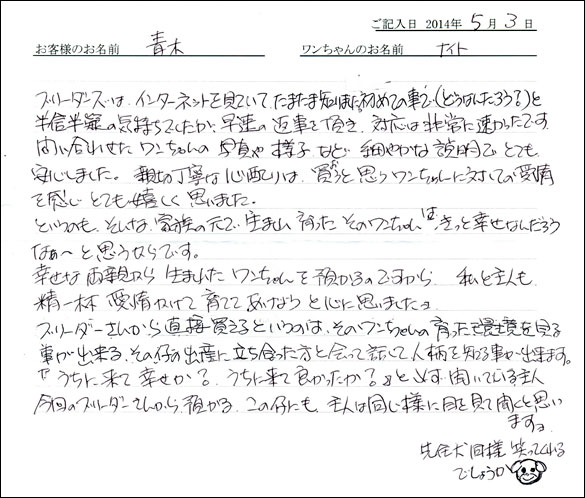 ご記入日 2014年 5月 3日
お客様のお名前 青木 ワンちゃんのお名前 ナイト
ブリーダーズは、インターネットを見ていて、たまたま知った初めての事で(どうなんだろう?)と
半信半疑の気持ちでしたが、早速の返事を頂き、対応は非常に速かったです。
問い合わせたワンちゃんの写真や様子など、細やかな説明でとても
安心しました。親切丁寧な心配りは、買おうと思うワンちゃんに対しての愛情
を感じとても嬉しく思いました。
というのも、そんな家族の元で生まれ育ったそのワンちゃんは、きっと幸せなんだろう
なぁ〜と思うからです。
幸せな両親から生まれたワンちゃんを預かるのですから、私と主人も
精一杯愛情かけて育ててあげようと心に思いましたョ
ブリーダーさんから直接買えるというのは、そのワンちゃんの育った環境を見る
事が出来る、その仔の出産に立ち会った方と会って話して人柄を知る事が出来ます。
『うちに来て幸せか?うちに来て良かったか?』と必ず聞いている主人
今回のブリーダーさんから預かる、この仔にも、主人は同じ様に目を見て聞くと思い
ますョ
先住犬同様笑ってくれる
でしょうか